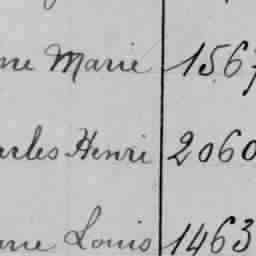 ne Marie 1567
arles Henri 2060
rre Louis 1463